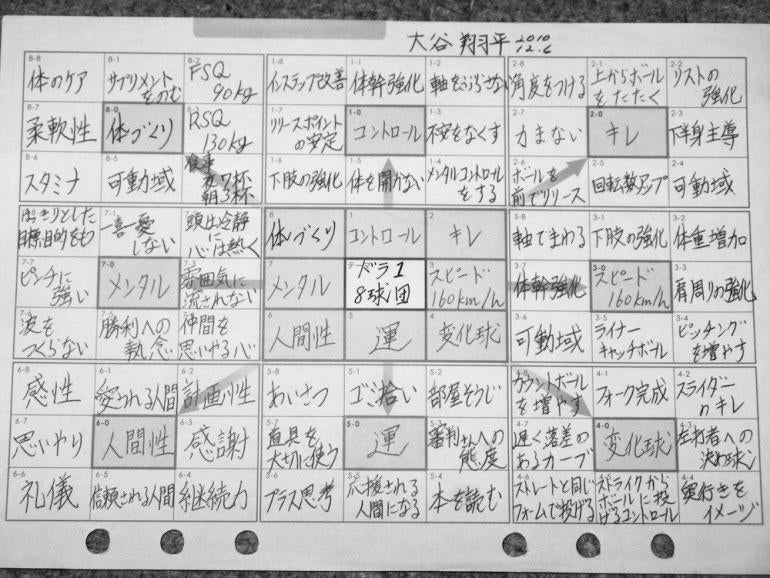 大谷 翔平 2010
12.6
8-8
体のケア
8-1
サプリメント
をのむ
8-2
FSQ
90kg
8-7
柔軟性
8-0
体づくり
RSQ
130kg
8-6
スタミナ
8-5
可動域
食事
夜7杯
朝3杯
1-8
インステップ改善
1-1
体幹強化
1-2
軸をぶらさない
1-7
リリースポイント
の安定
1-0
コントロール
1-3
不安をなくす
1-6
下肢の強化
1-5
体を開かない
1-4
メンタルコントロール
をする
2-8
角度をつける
2-1
上からボール
をたたく
2-2
リストの
強化
2-7
力まない
2-0
キレ
2-3
下半身主導
2-6
ボールを
前でリリース
2-5
回転数アップ
2-4
可動域
はっきりとした
目標、目的をもつ
7-1
一喜一憂
しない
頭は冷静
に
心は熱く
7-7
ピンチに
強い
7-0
メンタル
7-3
雰囲気に
流されない
波を
つくらない
勝利への
執念
仲間を
思いやる心
8
体づくり
1
コントロール
2
キレ
7
メンタル
ドラ1
8球団
3
スピード
160km/h
6
人間性
5
運
4
変化球
3-8
軸でまわる
3-1
下肢の強化
3-2
体重増加
3-7
体幹強化
3-0
スピード
160km/h
3-3
肩周りの強化
3-6
可動域
3-5
ライナー
キャッチボール
3-4
ピッチング
を増やす
6-8
感性
6-1
愛される人間
6-2
計画性
6-7
思いやり
6-0
人間性
6-3
感謝
6-6
礼儀
6-5
信頼される人間
6-4
継続力
5-8
あいさつ
5-1
ゴミ拾い
5-2
部屋そうじ
5-7
道具を
大切に使う
5-0
運
審判さんへの
態度
5-6
プラス思考
5-5
応援される
人間になる
5-4
本を読む
4-8
カウントボール
を増やす
4-1
フォーク完成
4-2
スライダー
のキレ
4-7
遅く落差の
あるカーブ
4-0
変化球
4-3
左打者への
決め球
4-6
ストレートと同じ
フォームで投げる
ストライクから
ボールに投
げるコントロール
4-4
奥行きを
イメージ